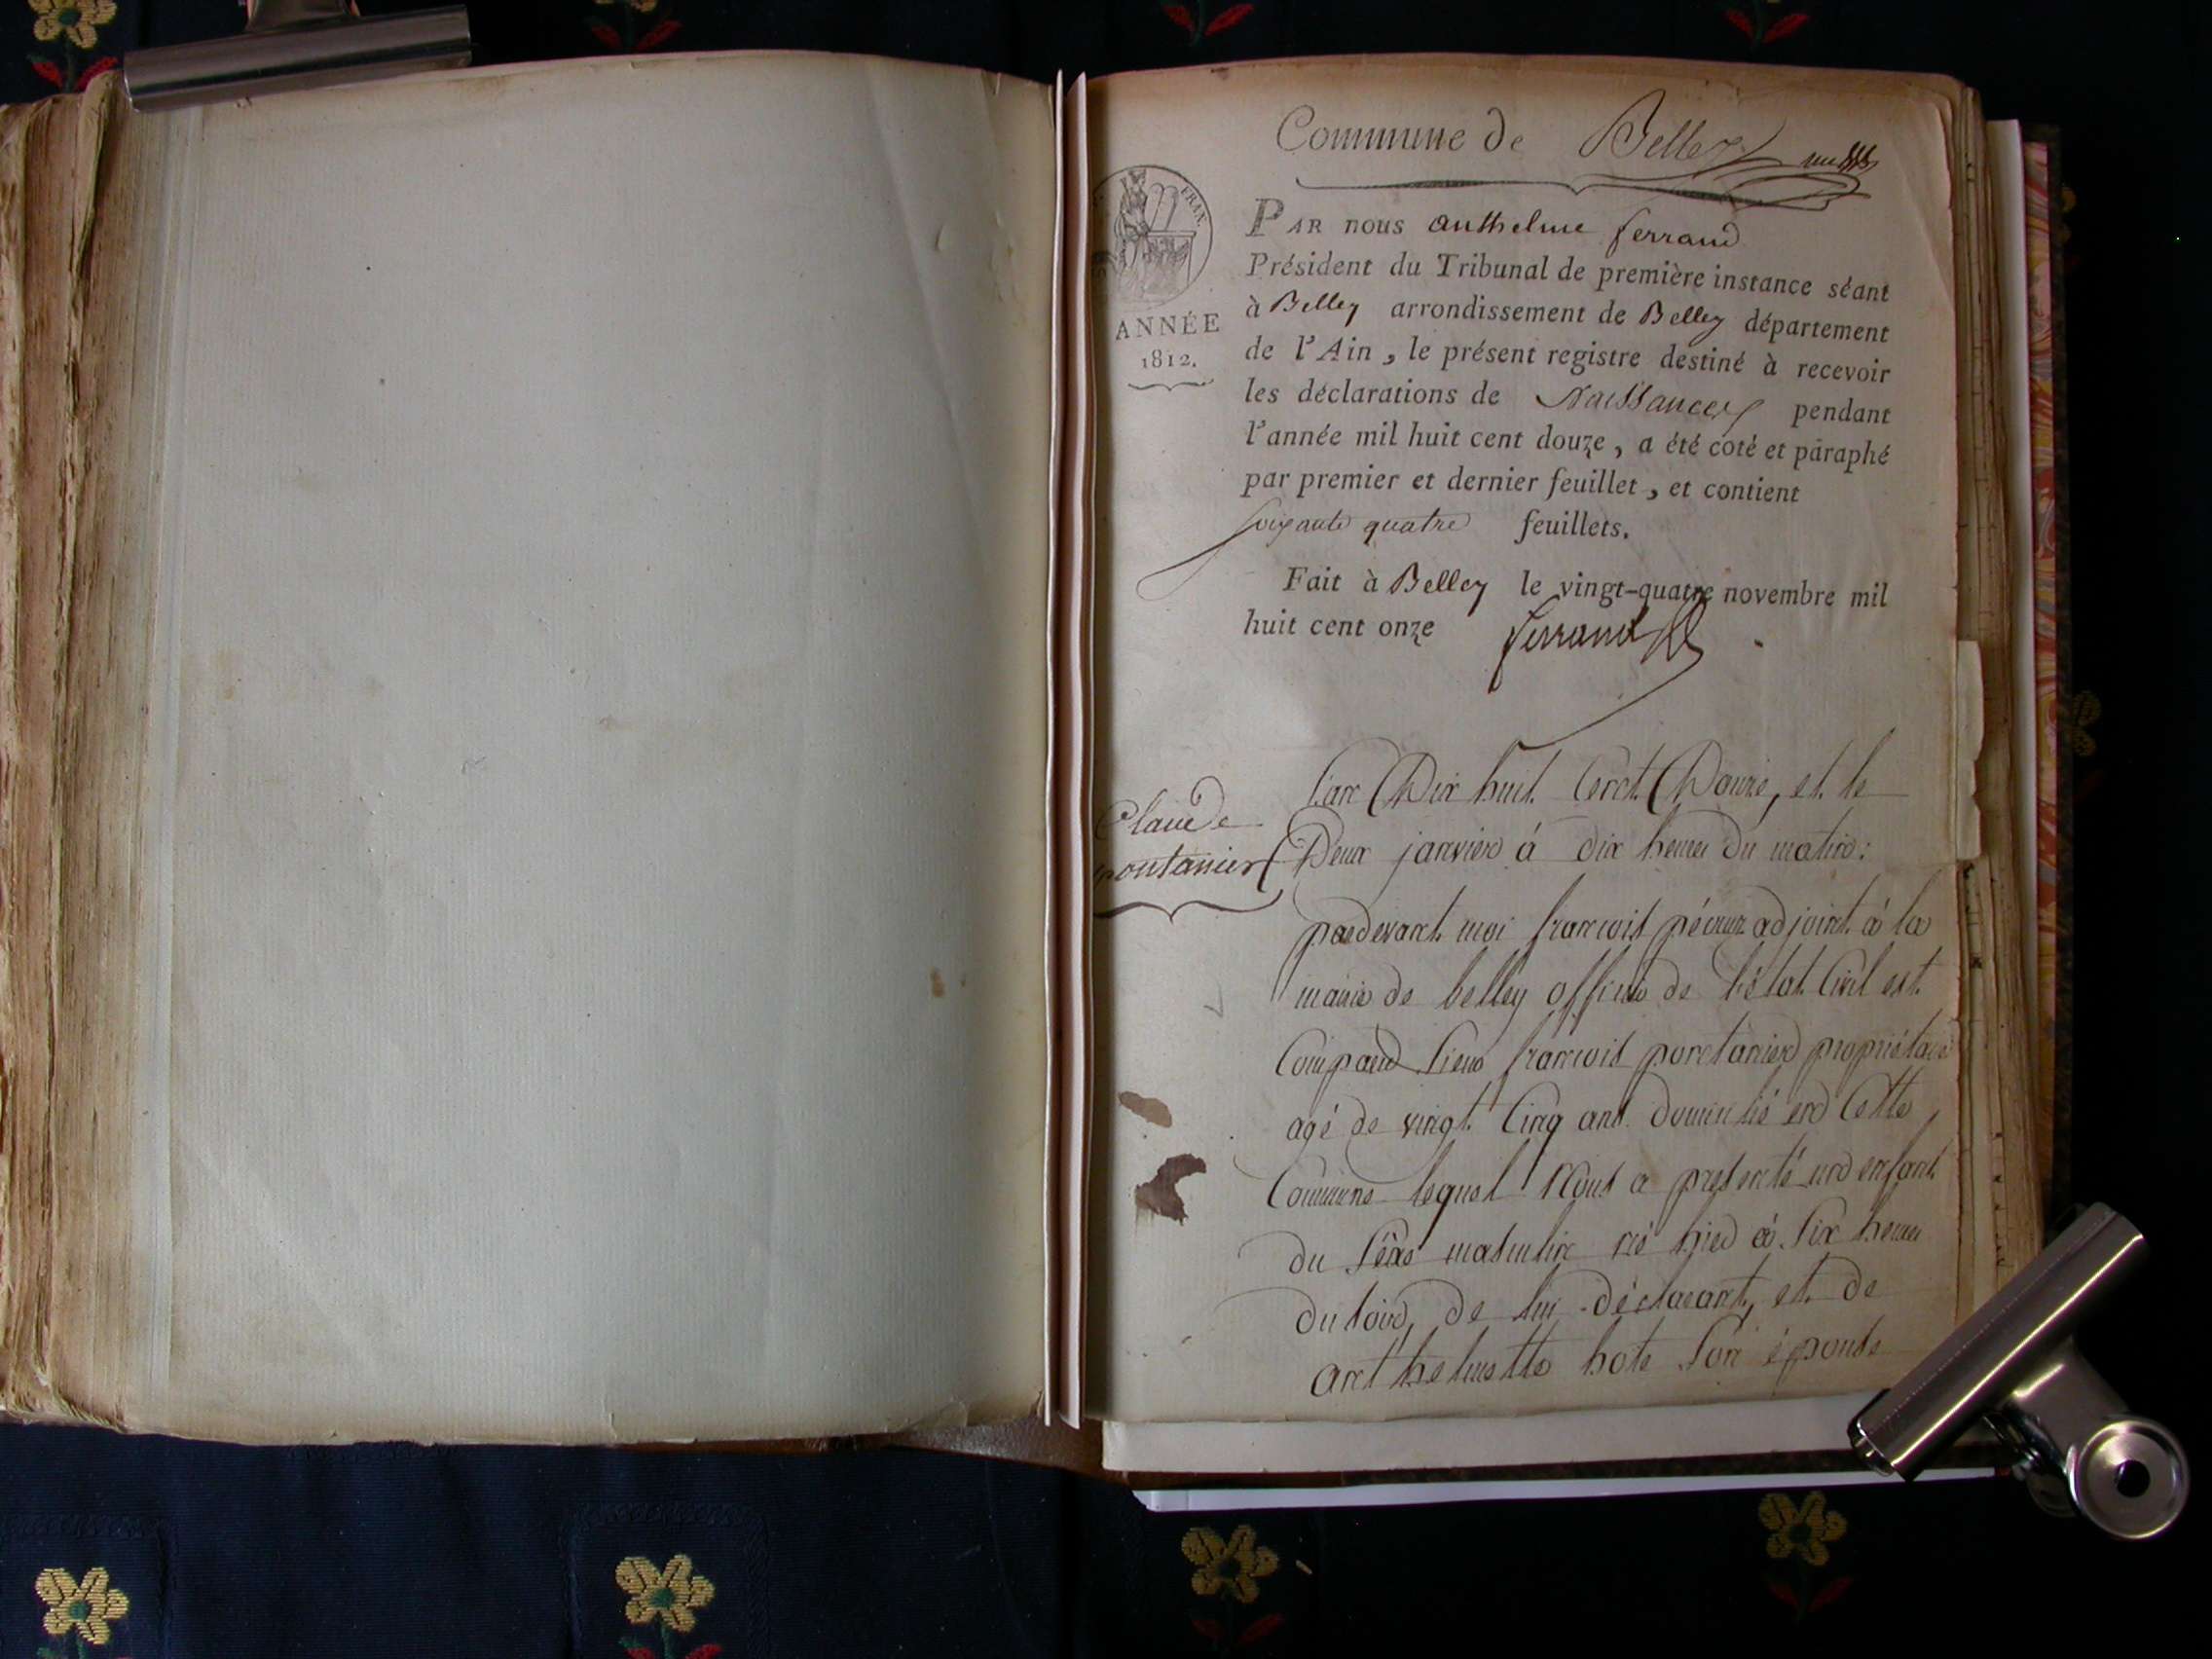 Commune de Belley
FRAN.
ANNÉE
1812.
PAR nous anthelme ferrand
Président du Tribunal de première instance séant
à Belley arrondissement de Belley département
de l'Ain, le présent registre destiné à recevoir
les déclarations de Naissances pendant
l'année mil huit cent douze, a été coté et paraphé
par premier et dernier feuillet, et contient
soixante quatre feuillets.
Fait à Belley le vingt-quatre novembre mil
huit cent onze ferrand
Claude
pontanier
L'an Dix huit Cent Douze, et le
Deux janvier à dix heures du matin:
pardevant moi francois adjoint à la
mairie de belley officier de l'état Civil est
Comparu Sieur francois pontanier propriétaire
agé de vingt Cinq ans domicilié en Cette
Commune lequel Nous a presenté un enfant
du Sexe masculin né hier à Six heures
du soir, de lui déclarant, et de
anthelmette hote Son épouse